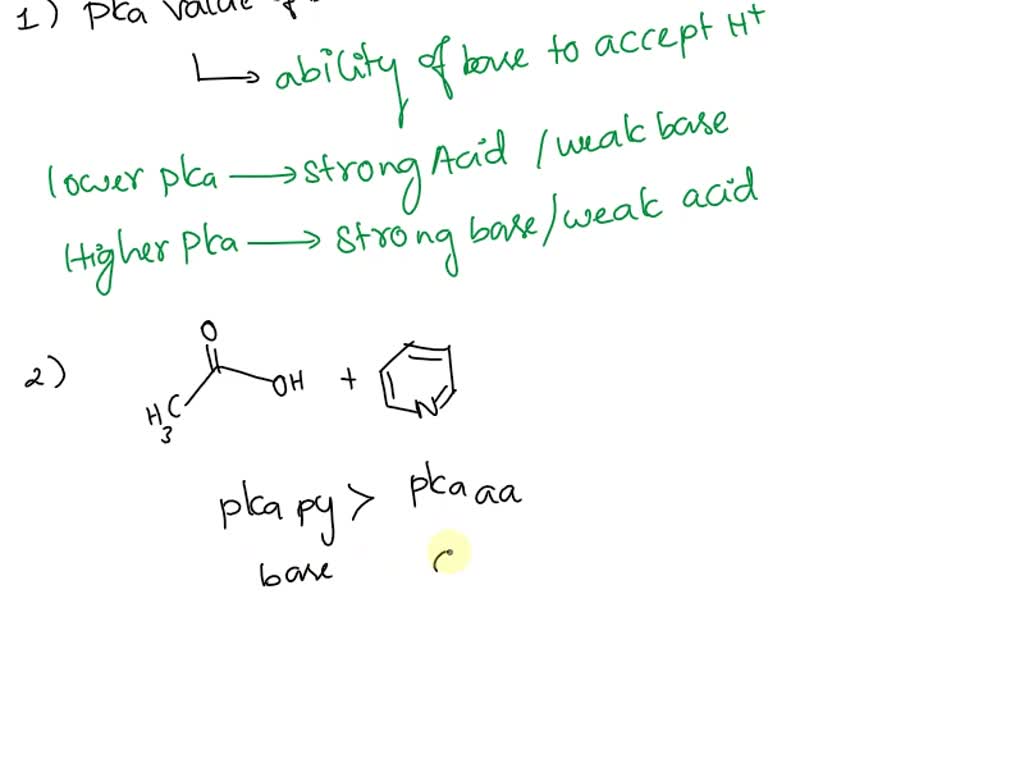 1) pka value of
ability of base to accept H+
lower pka → strong Acid / weak base
Higher pka → strong base/weak acid
2)
O
OH + N
H3C
pka py > pka aa
base